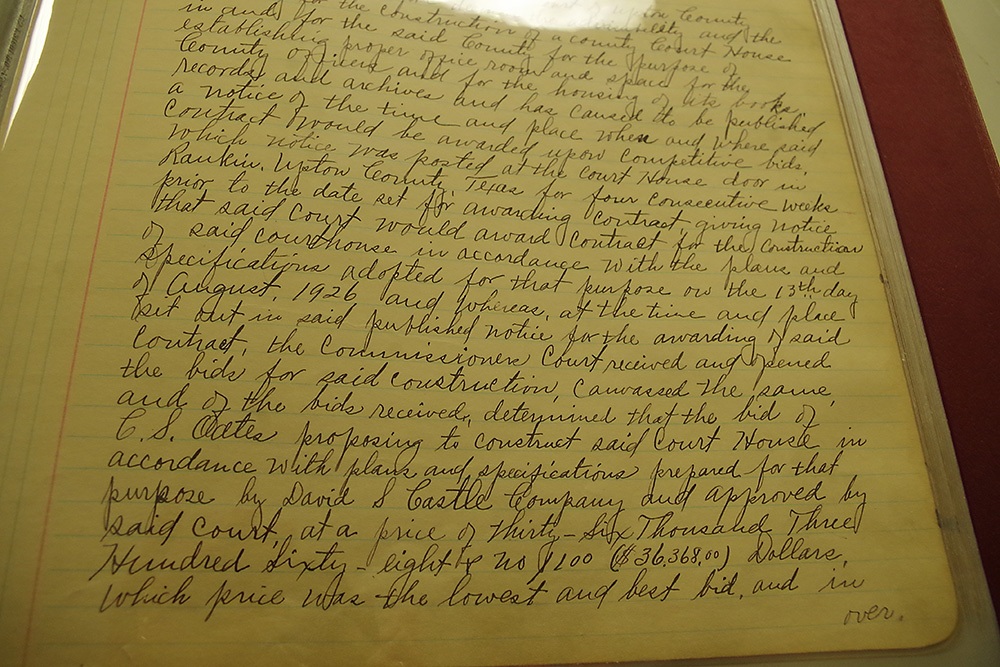 County
and the
in and for the construction of a County Court House
for the said County for the purpose of
establishing proper office room and space for the
County officers and for the housing of its books,
records and archives and has caused to be published
a notice of the time and place when and where said
contract would be awarded upon competitive bids,
which notice was posted at the Court House door in
Rankin, Upton County, Texas for four consecutive weeks
prior to the date set for awarding contract, giving notice
that said Court would award contract for the construction
of said courthouse in accordance with the plans and
specifications adopted for that purpose on the 13th day
of August, 1926, and whereas, at the time and place
set out in said published notice for the awarding of said
contract, the Commissioners Court received and opened
the bids for said construction, canvassed the same,
and of the bids received, determined that the bid of
C. S. Oates proposing to construct said Court House in
accordance with plans and specifications prepared for that
purpose by David S Castle Company and approved by
said Court, at a price of Thirty-Six Thousand Three
Hundred Sixty-eight & no/100 ($36,368.00) Dollars,
which price was the lowest and best bid, and in
over.